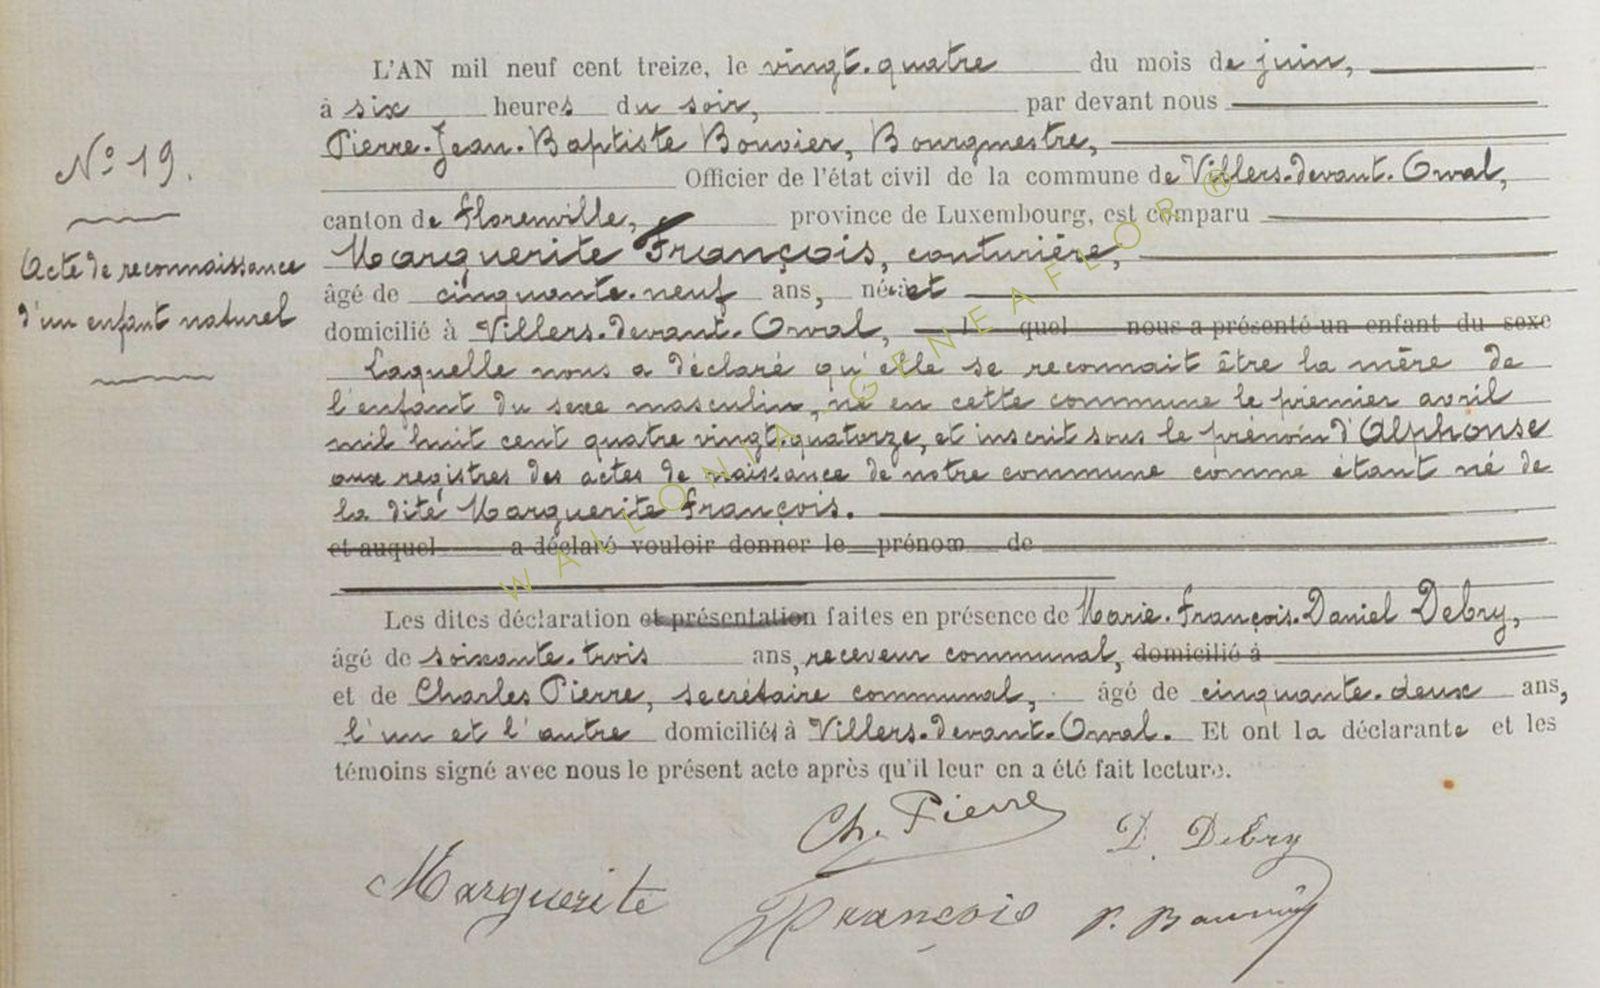 L'AN mil neuf cent treize, le vingt-quatre du mois de juin,
à six heures du soir, par devant nous
Pierre-Jean-Baptiste Bouvier, Bourgmestre,
Officier de l'état civil de la commune de Villers-devant-Orval,
canton de Florenville, province de Luxembourg, est comparu
Marguerite François, couturière,
âgé de cinquante-neuf ans, née et
domicilié à Villers-devant-Orval, l quel nous a présenté un enfant du sexe
Laquelle nous a déclaré qu'elle se reconnait être la mère de
l'enfant du sexe masculin, né en cette commune le premier avril
mil huit cent quatre vingt-quatorze, et inscrit sous le prénom d'Alphonse
aux registres des actes de naissance de notre commune comme étant né de
la dite Marguerite François.
et auquel a déclaré vouloir donner le prénom de
Les dites déclaration et présentation faites en présence de Marie-François-Daniel Debry,
âgé de soixante-trois ans, receveur communal, domicilié à
et de Charles Pierre, secrétaire communal, âgé de cinquante-deux ans,
l'un et l'autre domiciliés à Villers-devant-Orval. Et ont la déclarante et les
témoins signé avec nous le présent acte après qu'il leur en a été fait lecture.
N° 19.
Acte de reconnaissance
d'un enfant naturel
Ch. Pierre D. Debry
Marguerite François P. Bouvier
WALLONIA - GENEAFLOR ®